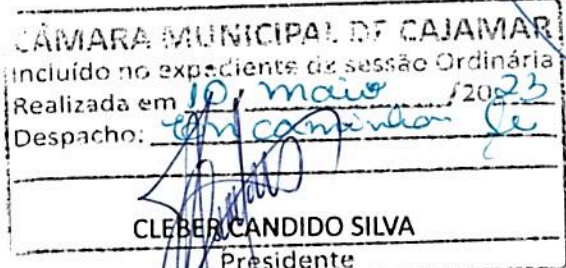 CÂMARA MUNICIPAL DE CAJAMAR
Incluído no expediente da sessão Ordinária
Realizada em 10, maio /2023
Despacho: Encaminha-se
CLEBER CANDIDO SILVA
Presidente